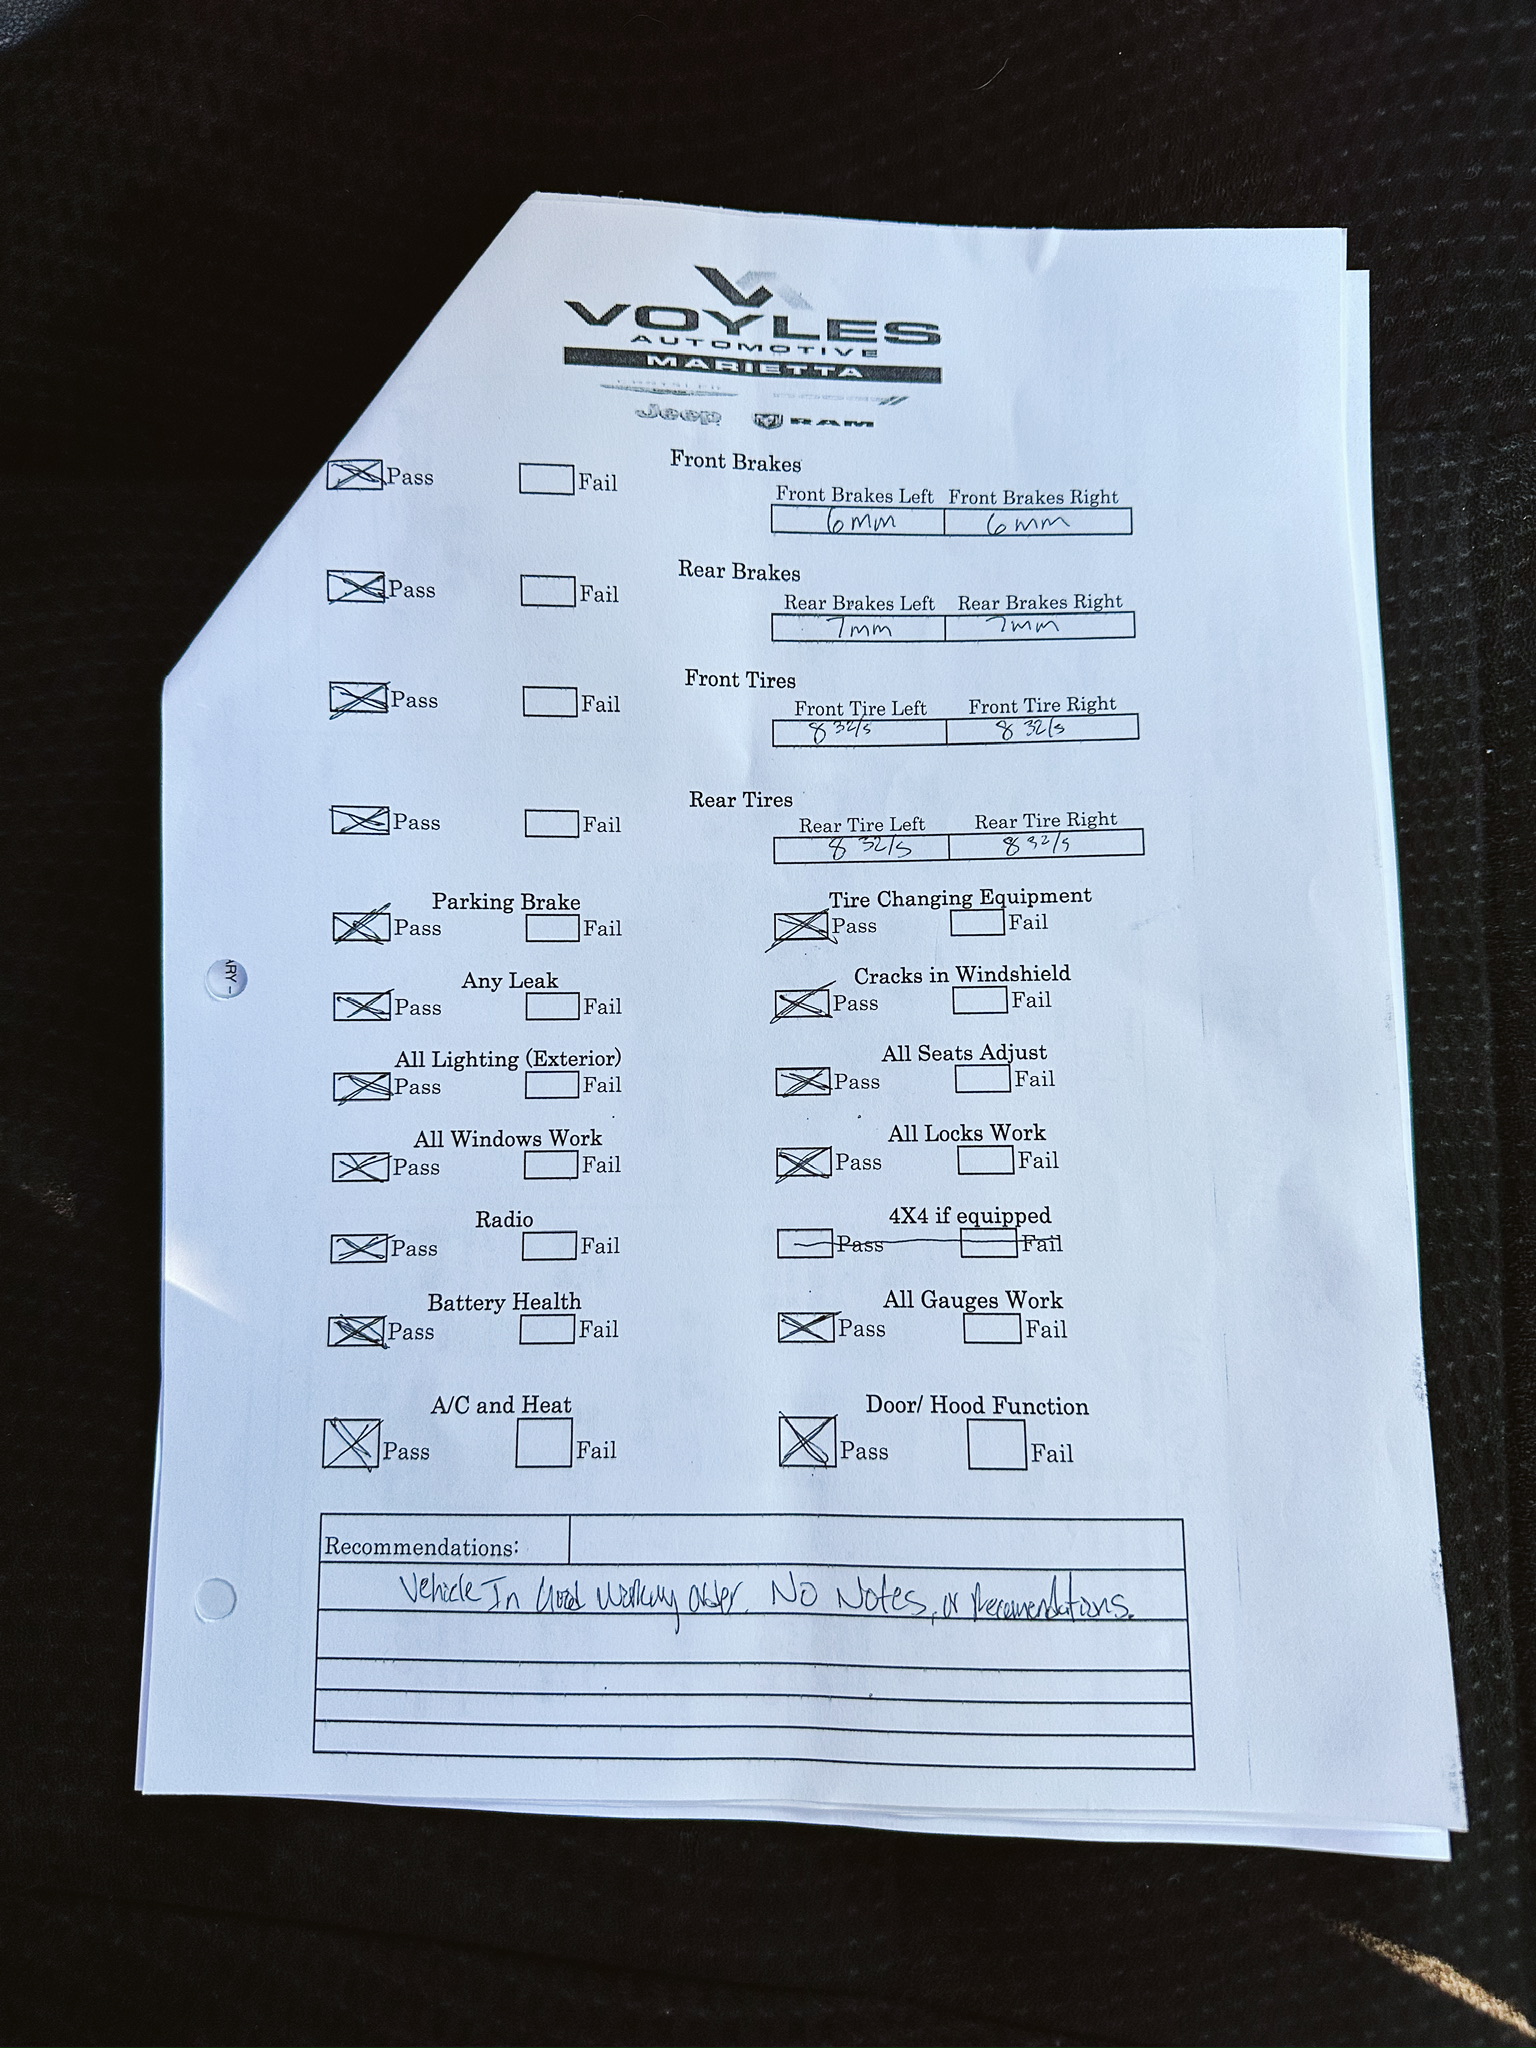 VOYLES
AUTOMOTIVE
MARIETTA
CHRYSLER DODGE
Jeep RAM
Pass Fail Front Brakes
Front Brakes Left Front Brakes Right
6mm 6mm
Pass Fail Rear Brakes
Rear Brakes Left Rear Brakes Right
7mm 7mm
Pass Fail Front Tires
Front Tire Left Front Tire Right
8 32/s 8 32/s
Pass Fail Rear Tires
Rear Tire Left Rear Tire Right
8 32/s 8 32/s
Parking Brake Tire Changing Equipment
Pass Fail Pass Fail
Any Leak Cracks in Windshield
Pass Fail Pass Fail
All Lighting (Exterior) All Seats Adjust
Pass Fail Pass Fail
All Windows Work All Locks Work
Pass Fail Pass Fail
Radio 4X4 if equipped
Pass Fail Pass Fail
Battery Health All Gauges Work
Pass Fail Pass Fail
A/C and Heat Door/ Hood Function
Pass Fail Pass Fail
ARY -
Recommendations:
Vehicle In Good Working order. No Notes, or Recomendations.